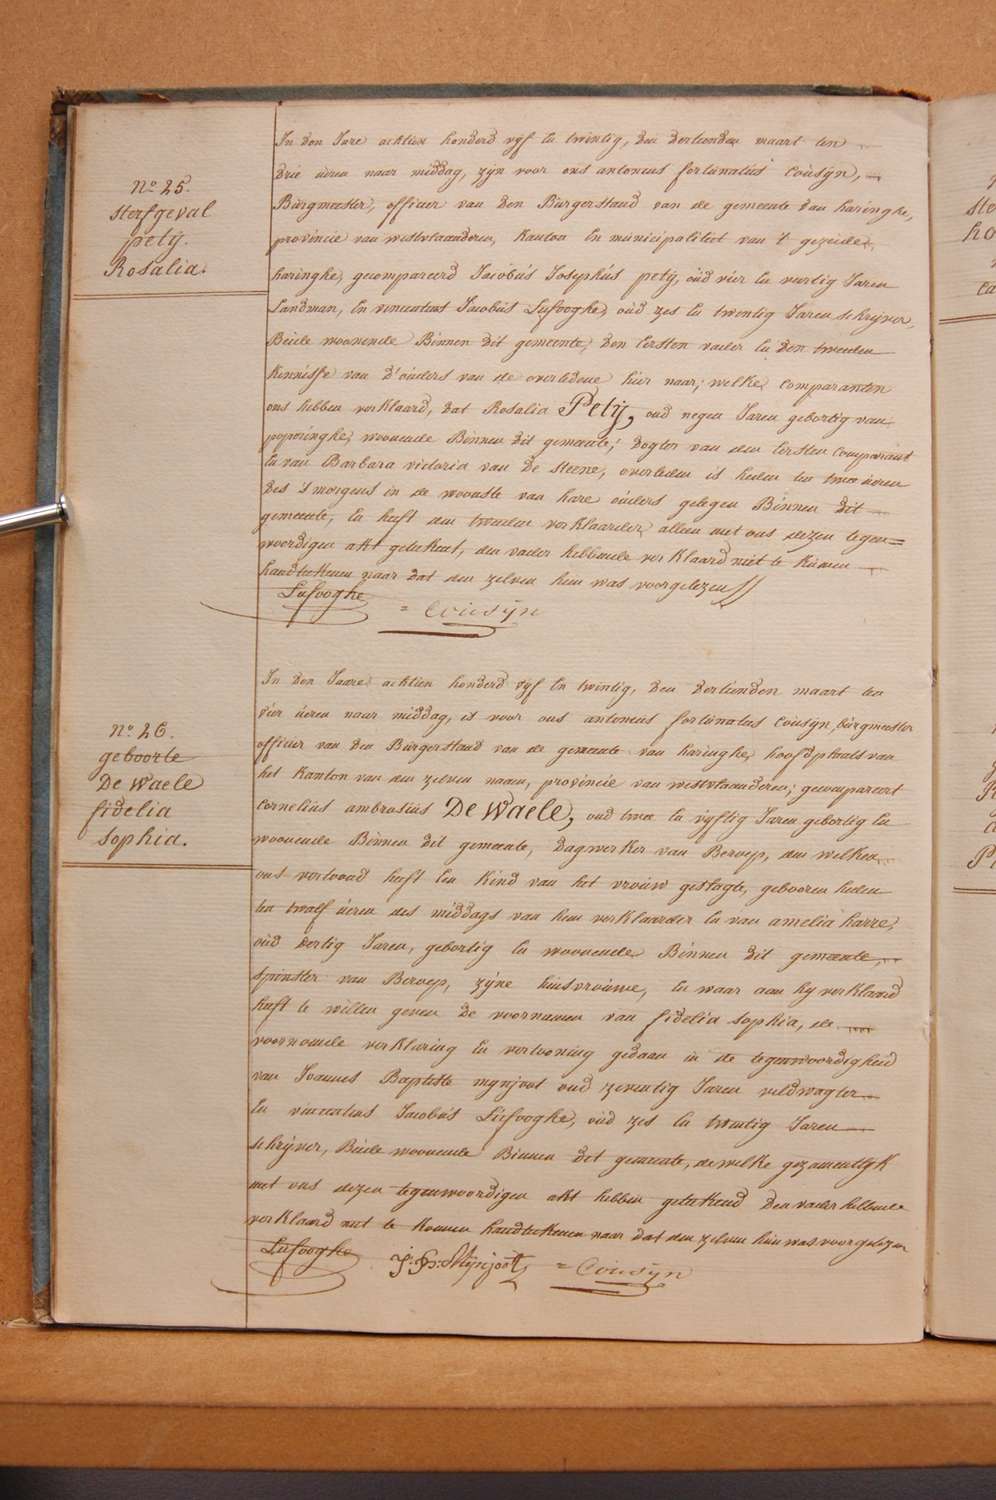 N° 25.
sterfgeval
petÿ.
Rosalia.
In den Jare achtien honderd vyf en twintig, den dertienden maart ten
drie uren naar middag, zÿn voor ons antonius fortunatus Cousÿn,
Burgmeester, officier van den Burgerstand van de gemeente van haringhe,
provincie van westvlaanderen, kanton en municipaliteit van 't gezeide
haringhe, gecompareerd Jacobus Josephus petÿ, oud vier en veertig Jaren
Landman, en vincentius Jacobus Lefooghe, oud zes en twentig Jaren schrÿver,
Beide woonende Binnen dit gemeente, den eersten vader en den tweeden
kennisse van d'ouders van de overledene hier naar; welke comparanten
ons hebben verklaard, dat Rosalia Petÿ, oud negen Jaren gebortig van
poperinghe, woonende Binnen dit gemeente; dogter van den eersten comparant
en van Barbara victoria van De steene, overleden is heden ten twee uren
des 's morgens in de wooste van hare ouders gelegen Binnen dit
gemeente, en heeft den tweeden verklaarder alleen met ons dezen tegen=
woordigen akt geteekent, den vader hebbende verklaard niet te kunnen
handteekenen naar dat den zelven hem was voorgelezen //
Lefooghe = Cousÿn
N° 26.
geboorte
De Waele
fidelia
sophia.
In den Jaare achtien honderd vÿf en twintig, den dertienden maart ten
vier uren naar middag, is voor ons antonius fortunatus Cousÿn, burgmeester
officier van den Burgerstand van de gemeente van haringhe, hoofdplaats van
het kanton van den zelven naam, provincie van westvlaanderen; gecompareert
Cornelius ambrosius De Waele, oud twee en vyftig Jaren gebortig en
woonende Binnen dit gemeente, Dagwerker van Beroep, den welken
ons vertoond heeft een kind van het vrouw geslagte, gebooren heden
ten twalf uren des middags van hem verklaarder en van amelia harre,
oud dertig Jaren, gebortig en woonende Binnen dit gemeente,
spinster van Beroep, zÿne huisvrouwe, en waar aan hy verklaard
heeft te willen geven de voornamen van fidelia sophia, de
voornoemde verklaring en vertooning gedaan in de tegenwoordigheid
van Joannes Baptiste mynjoot oud zeventig Jaren veldwagter
en vincentius Jacobus Lefooghe, oud zes en twentig Jaren
schrÿver, Beide woonende Binnen dit gemeente, de welke gezamentlÿk
met ons dezen tegenwoordigen akt hebben geteekend Den vader hebbende
verklaard niet te konnen handteekenen naar dat den zelven hem was voorgelezen
Lefooghe J. B. Mÿnjoot = Cousÿn